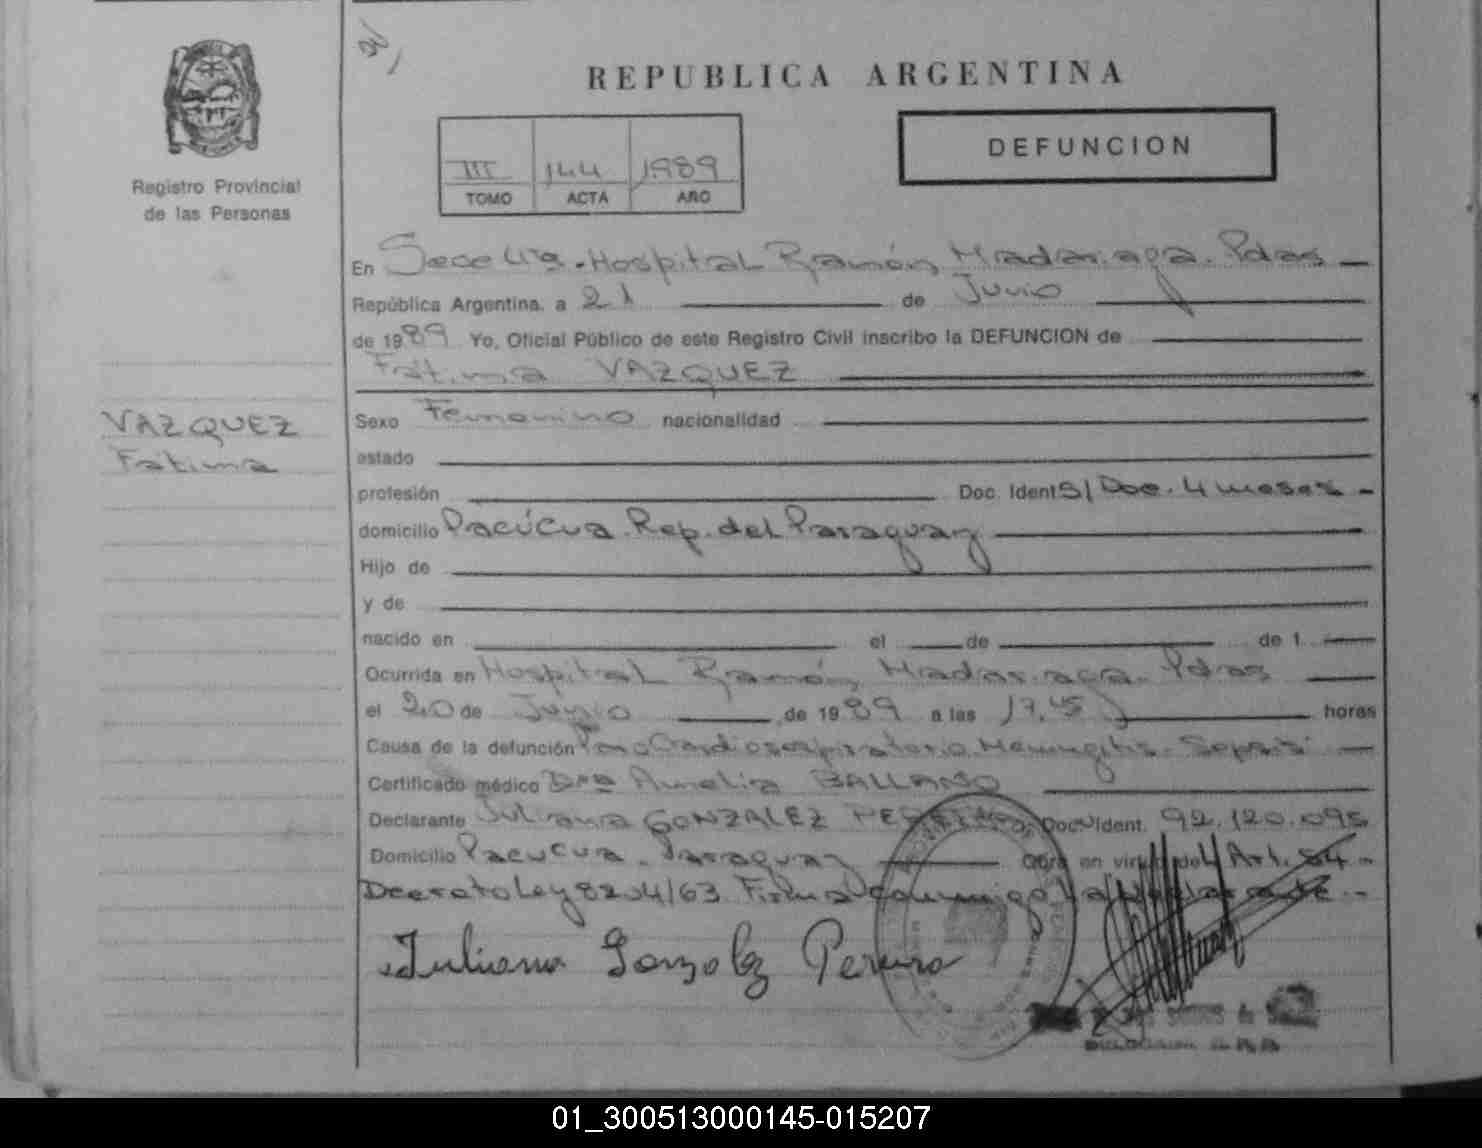 REPUBLICA ARGENTINA
DEFUNCION
III 144 1989
TOMO ACTA AÑO
Registro Provincial
de las Personas
En Secc 4ta. Hospital Ramón Madariaga. Pdas
República Argentina, a 21 de Junio
de 1989 Yo, Oficial Público de este Registro Civil inscribo la DEFUNCION de
Fátima VAZQUEZ
VAZQUEZ
Fátima
Sexo Femenino nacionalidad
estado
profesión Doc. Ident S/Doc. 4 meses
domicilio Pacúcua. Rep. del Paraguay
Hijo de
y de
nacido en el de de 1
Ocurrida en Hospital Ramón Madariaga. Pdas
el 20 de Junio de 1989 a las 17,45 horas
Causa de la defunción Paro Cardiorespiratorio. Meningitis. Sepsis
Certificado médico Dra Amelia BALLASO
Declarante Juliana GONZALEZ PEREIRA Doc. Ident. 92.120.095
Domicilio Pacucua. Paraguay Obra en virtud del Art. 54
Decreto Ley 8204/63. Firma conmigo la declarante
Juliana Gonzalez Pereira
01_300513000145-015207